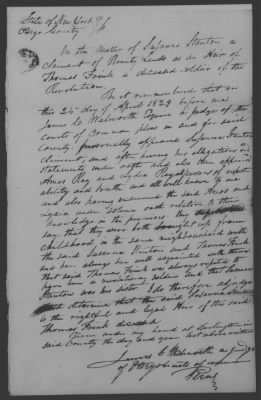 State of New York
Otsego County } SS
In the matter of Susanna Stunton a
claimant of Bounty Lands as an Heir of
Thomas Frink a deceased soldier of the
Revolution
Be it remembered that on
this 24th day of April 1829 before me
James C. Walworth Esquire a judge of the
Courts of Common pleas in and for said
County, personally appeared Susanna Stunton
claimant, and after having her allegations and
statements under oath also then appeared
Amos Ray and Lydia Ray persons of respect
ability and truth and well known to me
and also having examined the said Amos and
Lydia under solemn oath relative to their
knowledge in the premises they
say that they were both brought up from
childhood in the same neighbourhood with
the said Susanna Stunton and Thomas Frink
and have always been well acquainted with them
that said Thomas Frink was always reputed to
have been a revolutionary soldier and that Susanna
Stunton was his sister I do therefore adjudge
and determine that the said Susanna Stunton
is the rightful and legal Heir of the said
Thomas Frink deceased
Given under my hand at Burlington in
said County the day and year last above written
James C Walworth a judge
of Otsego County